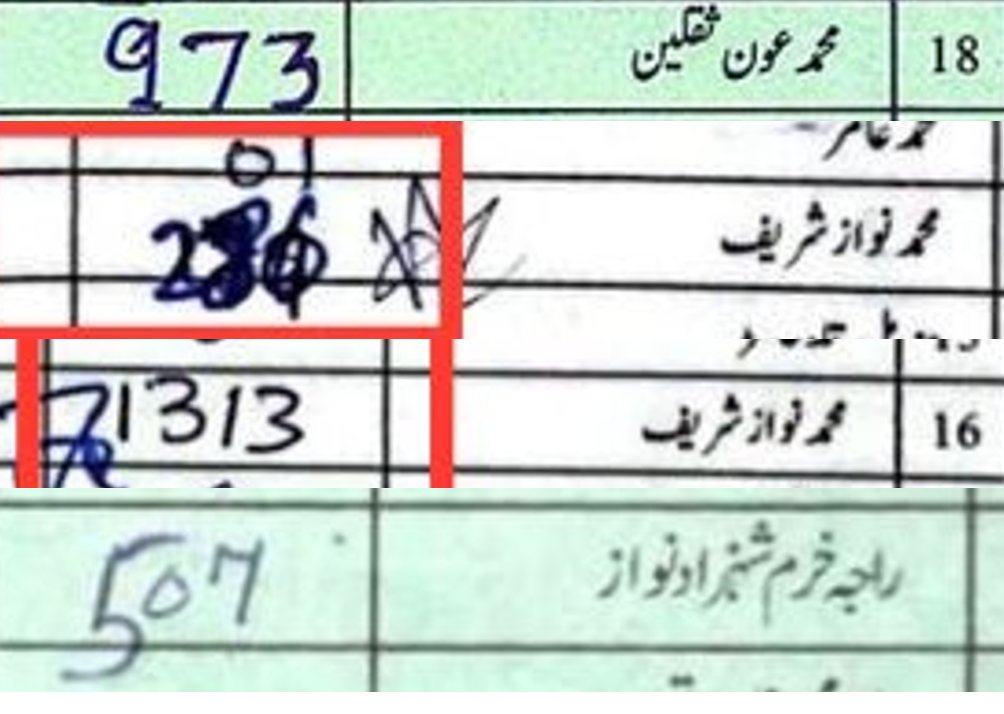 18 محمد عون ثقلین 973
01
محمد نواز شریف
16 محمد نواز شریف 71313
راجہ خرم شہزاد نواز 507